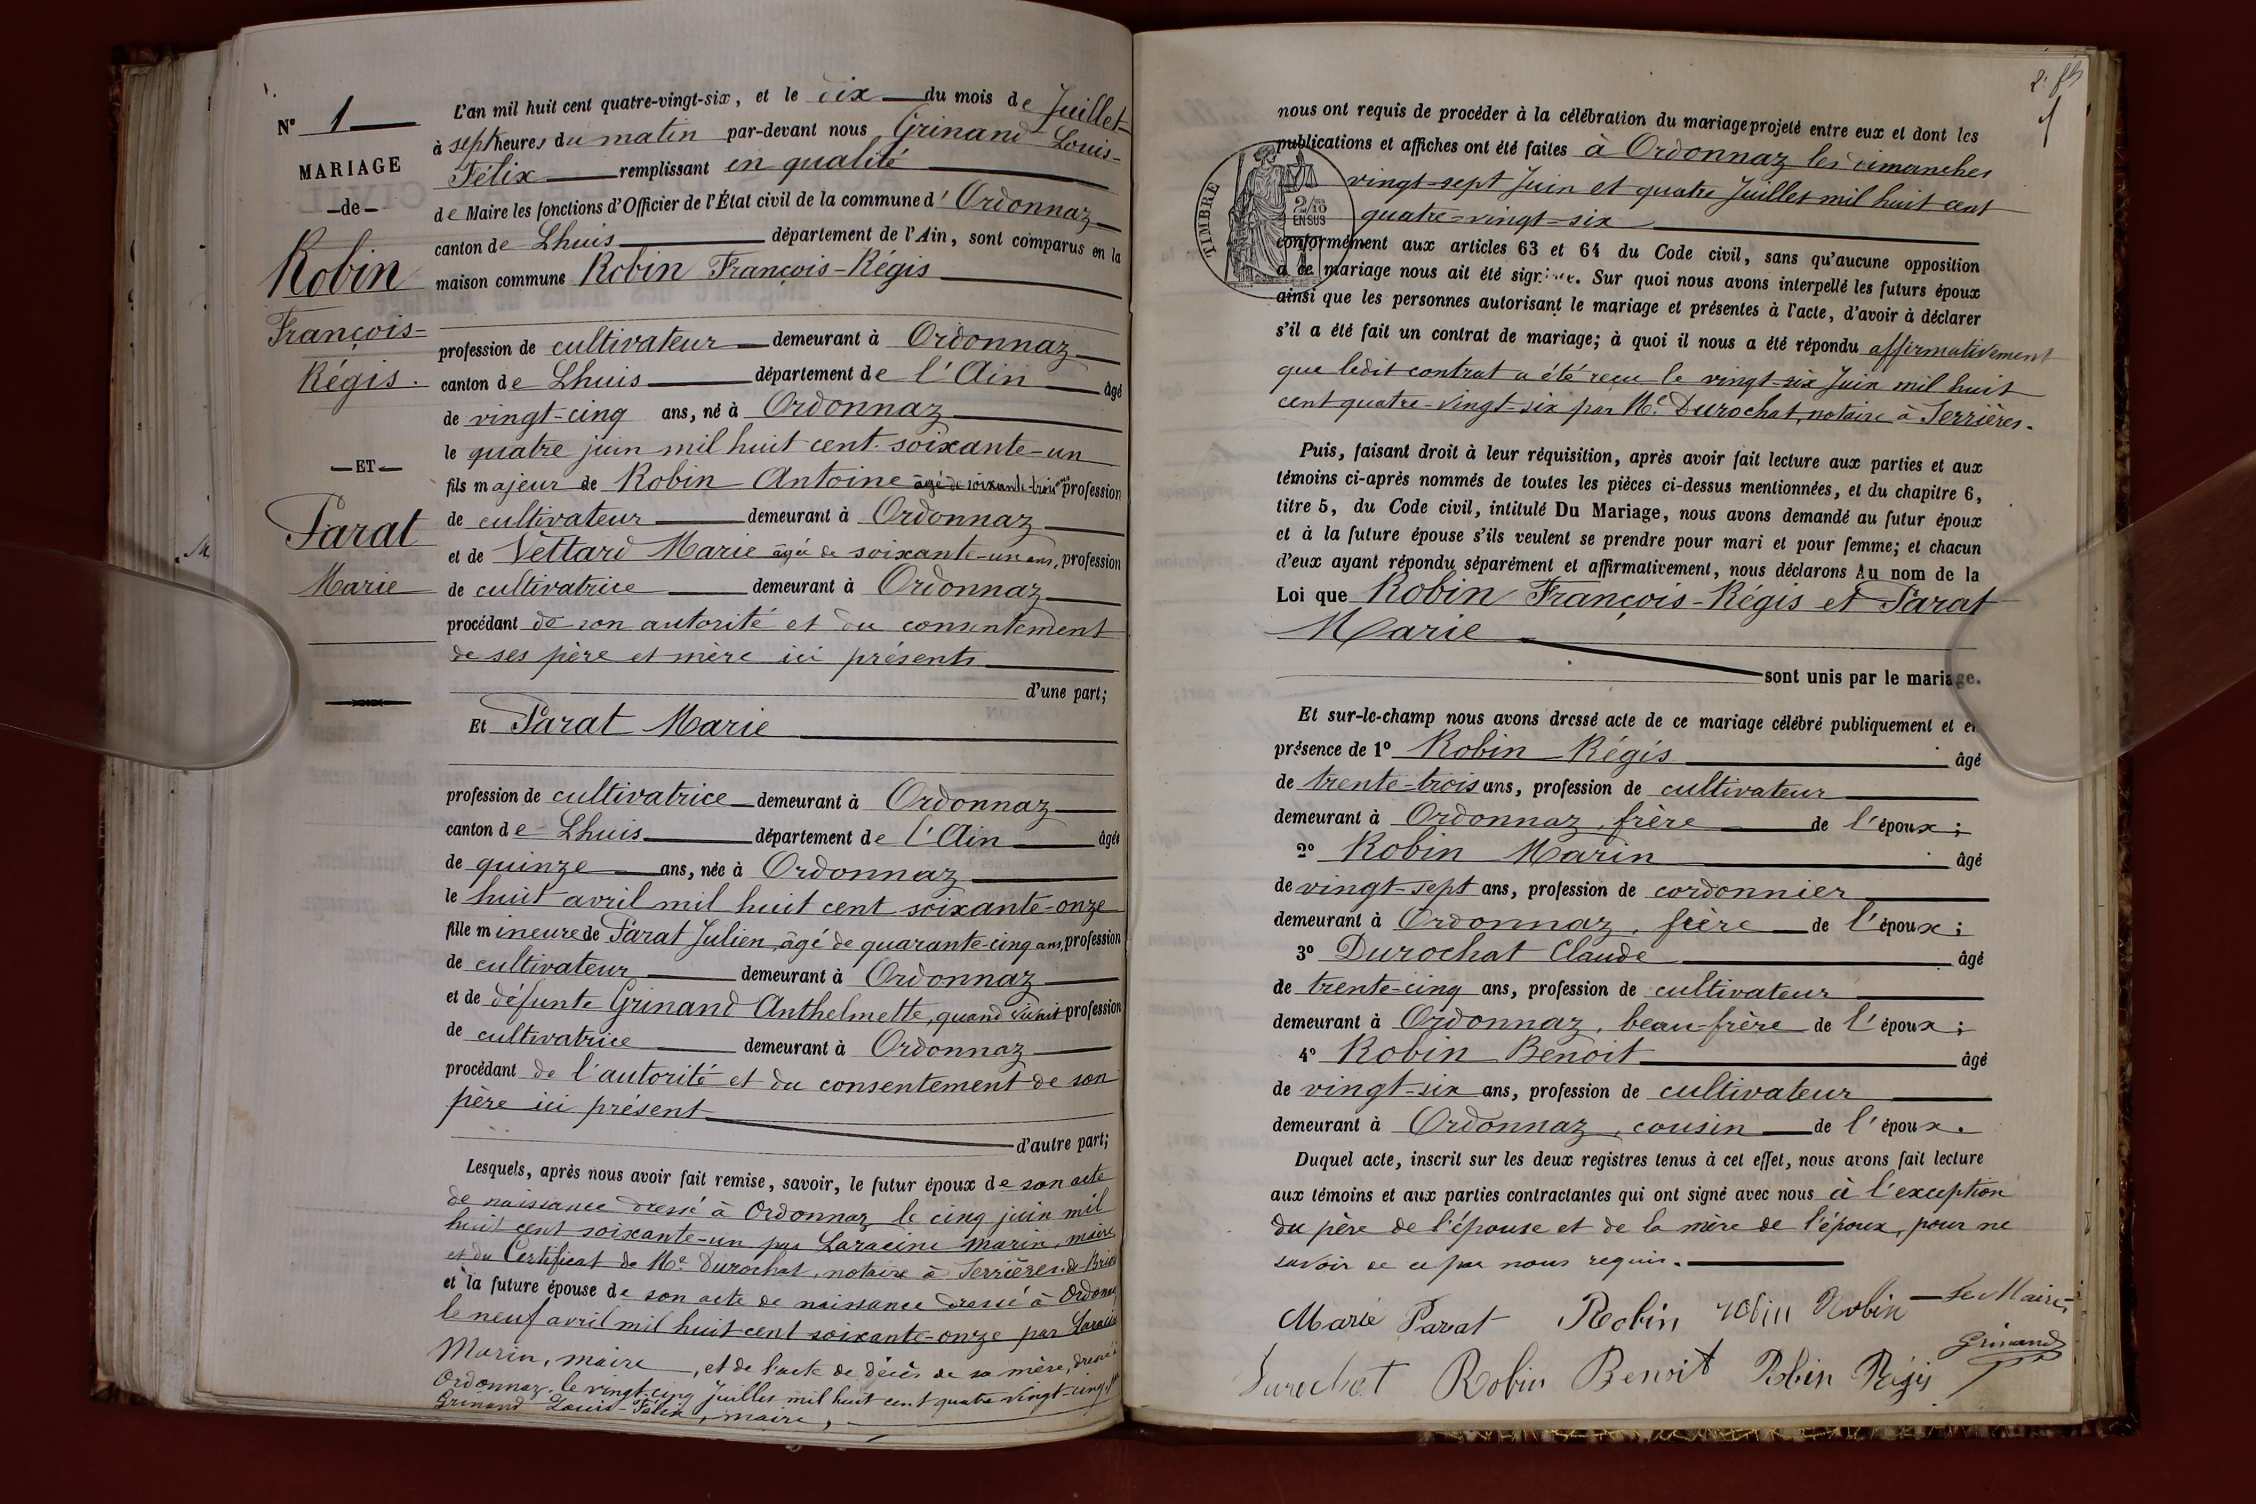 N° 1
MARIAGE
de
Robin
François-
Régis.
ET
Parat
Marie
L'an mil huit cent quatre-vingt-six, et le dix du mois de Juillet
à sept heures du matin par-devant nous Grinand Louis-
Félix remplissant en qualité
de Maire les fonctions d'Officier de l'État civil de la commune d'Ordonnaz
canton de Lhuis département de l'Ain, sont comparus en la
maison commune Robin François-Régis
profession de cultivateur demeurant à Ordonnaz
canton de Lhuis département de l'Ain âgé
de vingt-cinq ans, né à Ordonnaz
le quatre juin mil huit cent soixante-un
fils majeur de Robin Antoine âgé de soixante-trois ans profession
de cultivateur demeurant à Ordonnaz
et de Vettard Marie âgée de soixante-un ans, profession
de cultivatrice demeurant à Ordonnaz
procédant de son autorité et du consentement
de ses père et mère ici présents
d'une part;
Et Parat Marie
profession de cultivatrice demeurant à Ordonnaz
canton de Lhuis département de l'Ain âgée
de quinze ans, née à Ordonnaz
le huit avril mil huit cent soixante-onze
fille mineure de Parat Julien, âgé de quarante-cinq ans, profession
de cultivateur demeurant à Ordonnaz
et de défunte Grinand Anthelmette, quand vivait profession
de cultivatrice demeurant à Ordonnaz
procédant de l'autorité et du consentement de son
père ici présent
d'autre part;
Lesquels, après nous avoir fait remise, savoir, le futur époux de son acte
de naissance dressé à Ordonnaz le cinq juin mil
huit cent soixante-un par Laracine Marin, maire
et du Certificat de Me Durochat, notaire à Serrières-de-Briord
et la future épouse de son acte de naissance dressé à Ordonnaz
le neuf avril mil huit cent soixante-onze par Laracine
Marin, maire, et de l'acte de décès de sa mère, dressé à
Ordonnaz, le vingt-cinq Juillet mil huit cent quatre vingt-cinq par
Grinand Louis-Félix, maire,
TIMBRE
2/10
EN SUS
nous ont requis de procéder à la célébration du mariage projeté entre eux et dont les
publications et affiches ont été faites à Ordonnaz les dimanches
vingt-sept Juin et quatre Juillet mil huit cent
quatre-vingt-six
conformément aux articles 63 et 64 du Code civil, sans qu'aucune opposition
à ce mariage nous ait été signifiée. Sur quoi nous avons interpellé les futurs époux
ainsi que les personnes autorisant le mariage et présentes à l'acte, d'avoir à déclarer
s'il a été fait un contrat de mariage; à quoi il nous a été répondu affirmativement
que ledit contrat a été reçu le vingt-six Juin mil huit
cent quatre-vingt-six par Me Durochat, notaire à Serrières.
Puis, faisant droit à leur réquisition, après avoir fait lecture aux parties et aux
témoins ci-après nommés de toutes les pièces ci-dessus mentionnées, et du chapitre 6,
titre 5, du Code civil, intitulé Du Mariage, nous avons demandé au futur époux
et à la future épouse s'ils veulent se prendre pour mari et pour femme; et chacun
d'eux ayant répondu séparément et affirmativement, nous déclarons Au nom de la
Loi que Robin François-Régis et Parat
Marie
sont unis par le mariage.
Et sur-le-champ nous avons dressé acte de ce mariage célébré publiquement et en
présence de 1° Robin Régis âgé
de trente-trois ans, profession de cultivateur
demeurant à Ordonnaz, frère de l'époux;
2° Robin Marin âgé
de vingt-sept ans, profession de cordonnier
demeurant à Ordonnaz, frère de l'époux;
3° Durochat Claude âgé
de trente-cinq ans, profession de cultivateur
demeurant à Ordonnaz, beau-frère de l'époux;
4° Robin Benoit âgé
de vingt-six ans, profession de cultivateur
demeurant à Ordonnaz, cousin de l'époux.
Duquel acte, inscrit sur les deux registres tenus à cet effet, nous avons fait lecture
aux témoins et aux parties contractantes qui ont signé avec nous à l'exception
du père de l'épouse et de la mère de l'époux, pour ne
savoir de ce par nous requis.
Marie Parat Robin robin Robin Le Maire,
Grinand
Durochat Robin Benoit Robin Régis